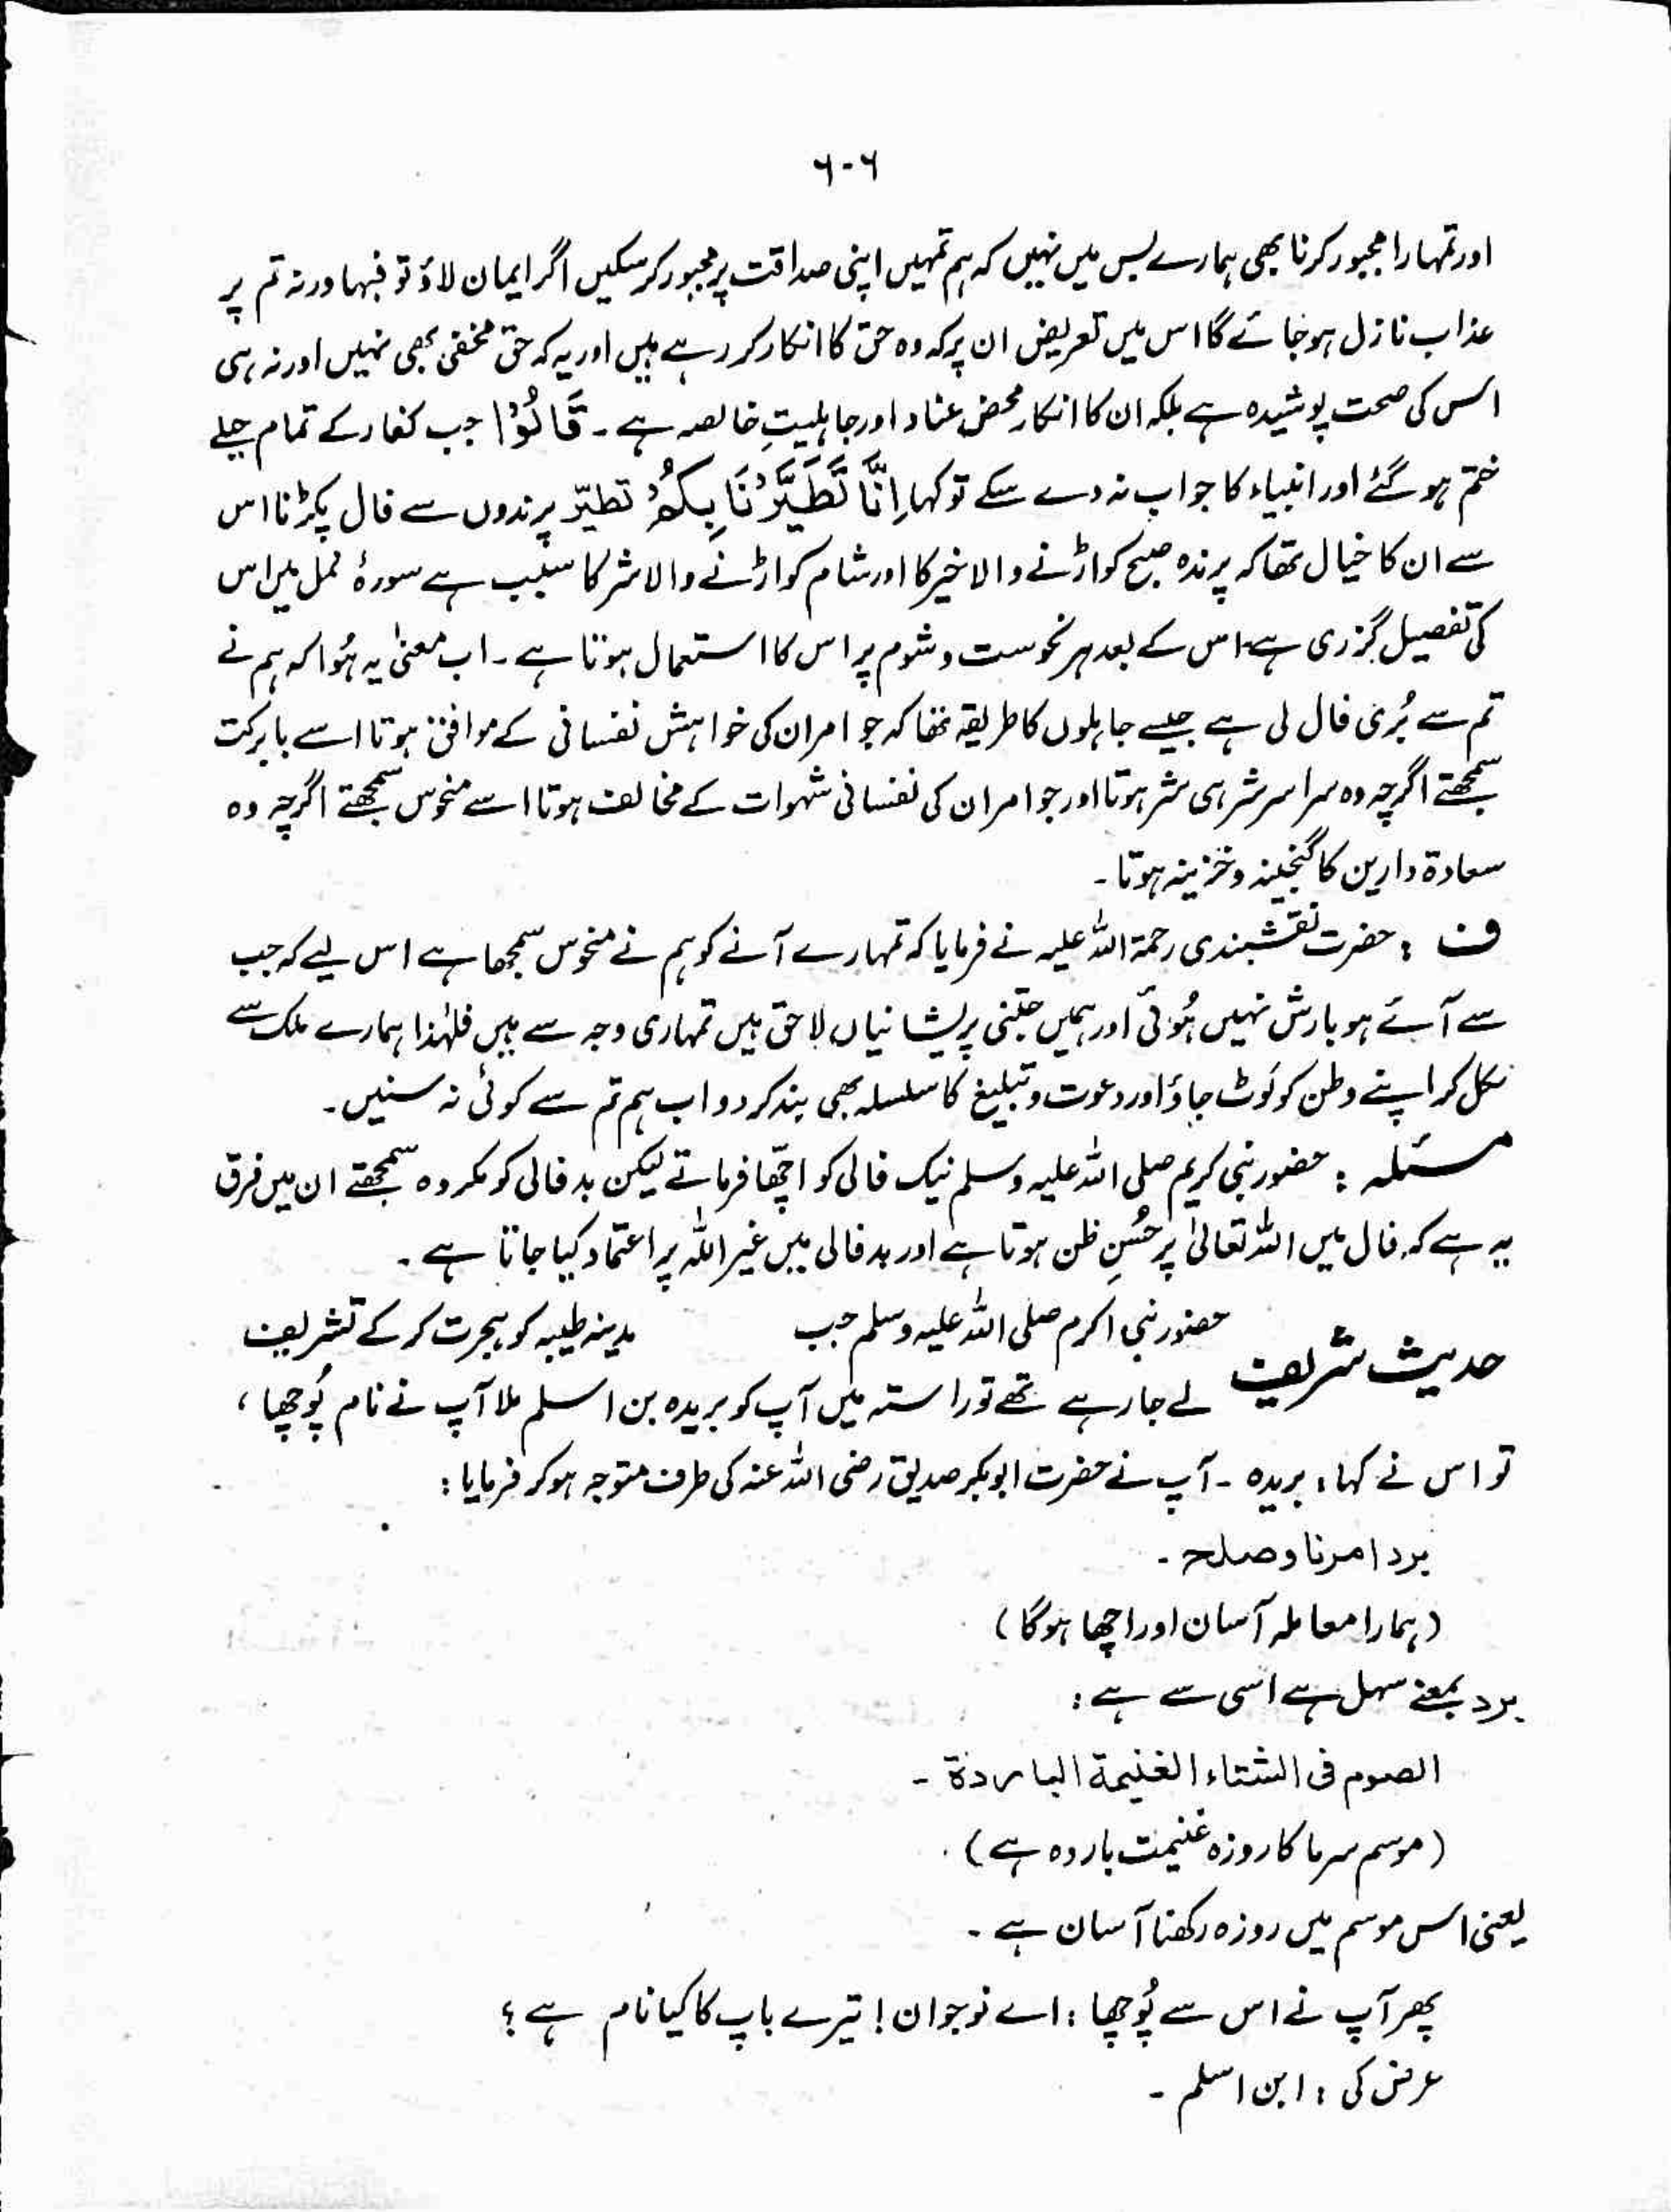 ۶۰۶
اور تمہارا مجبور کرنا بھی ہمارے بس میں نہیں کہ ہم تمہیں اپنی صداقت پر مجبور کر سکیں اگر ایمان لاؤ تو فبہا ورنہ تم پر
عذاب نازل ہو جائے گا اس میں تعریض ان پر کہ وہ حق کا انکار کر رہے ہیں اور یہ کہ حق مخفی بھی نہیں اور نہ ہی
اس کی صحت پوشیدہ ہے بلکہ ان کا انکار محض عناد اور جاہلیتِ خالصہ ہے ۔ قَالُوْٓا جب کفار کے تمام حیلے
ختم ہو گئے اور انبیاء کا جواب نہ دے سکے تو کہا اِنَّا تَطَيَّرْنَا بِكُمْ تطیّر پرندوں سے فال پکڑنا اس
سے ان کا خیال تھا کہ پرندہ صبح کو اڑنے والا خیر کا اور شام کو اڑنے والا شر کا سبب ہے سورۂ نمل میں اس
کی تفصیل گزری ہے اس کے بعد ہر نحوست و شوم پر اس کا استعمال ہوتا ہے ۔ اب معنیٰ یہ ہُوا کہ ہم نے
تم سے بُری فال لی ہے جیسے جاہلوں کا طریقہ تھا کہ جو امر ان کی خواہش نفسانی کے موافق ہوتا اسے بابرکت
سمجھتے اگرچہ وہ سراسر شر ہی شر ہوتا اور جو امر ان کی نفسانی شہوات کے مخالف ہوتا اسے منحوس سمجھتے اگرچہ وہ
سعادۃ دارین کا گنجینہ و خزینہ ہوتا ۔
ف : حضرت نقشبندی رحمۃ اللہ علیہ نے فرمایا کہ تمہارے آنے کو ہم نے منحوس سمجھا ہے اس لیے کہ جب
سے آئے ہو بارش نہیں ہُوئی اور ہمیں جتنی پریشانیاں لاحق ہیں تمہاری وجہ سے ہیں فلہٰذا ہمارے ملک سے
نکل کر اپنے وطن کو لَوٹ جاؤ اور دعوت و تبلیغ کا سلسلہ بھی بند کر دو اب ہم تم سے کوئی نہ سنیں ۔
مسئلہ : حضور نبی کریم صلی اللہ علیہ وسلم نیک فالی کو اچھا فرماتے لیکن بد فالی کو مکروہ سمجھتے ان میں فرق
یہ ہے کہ فال میں اللہ تعالیٰ پر حُسنِ ظن ہوتا ہے اور بد فالی میں غیر اللہ پر اعتماد کیا جاتا ہے ۔
حدیث شریف حضور نبی اکرم صلی اللہ علیہ وسلم جب مدینہ طیبہ کو ہجرت کر کے تشریف
لے جا رہے تھے تو راستہ میں آپ کو بریدہ بن اسلم ملا آپ نے نام پُوچھا ،
تو اس نے کہا : بریدہ ۔ آپ نے حضرت ابوبکر صدیق رضی اللہ عنہ کی طرف متوجہ ہو کر فرمایا :
برد امرنا وصلح ۔
(ہمارا معاملہ آسان اور اچھا ہوگا)
برد بمعنے سہل ہے اسی سے ہے :
الصوم فی الشتاء الغنیمة الباردة ۔
(موسم سرما کا روزہ غنیمت باردہ ہے) ۔
یعنی اس موسم میں روزہ رکھنا آسان ہے ۔
پھر آپ نے اس سے پُوچھا : اے نوجوان ! تیرے باپ کا کیا نام ہے ؟
عرض کی : ابن اسلم ۔